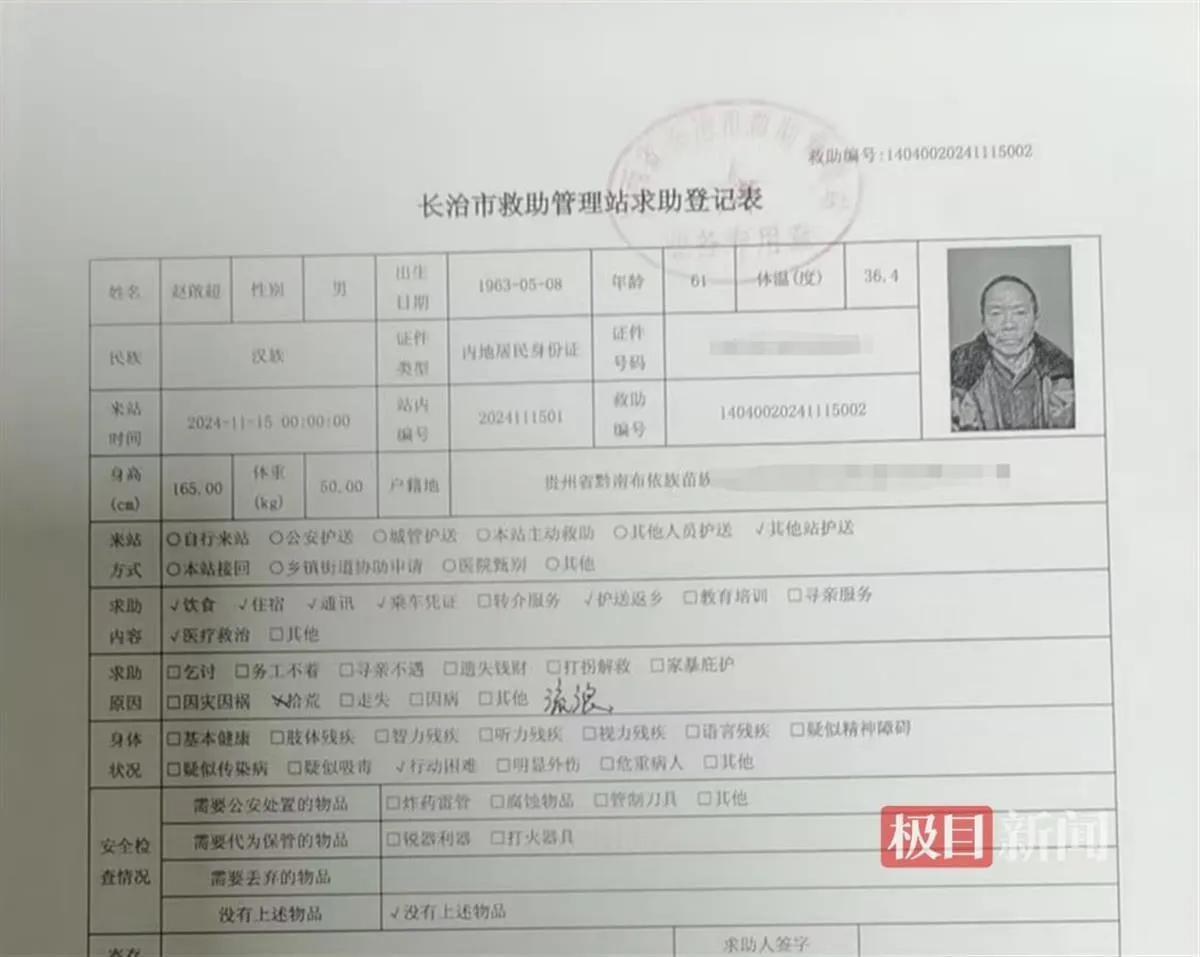 救助编号:14040020241115002
长治市救助管理站求助登记表
姓名 赵啟超 性别 男 出生日期 1963-05-08 年龄 61 体温(度) 36.4
民族 汉族 证件类型 内地居民身份证 证件号码
来站时间 2024-11-15 00:00:00 站内编号 2024111501 救助编号 14040020241115002
身高(cm) 165.00 体重(kg) 50.00 户籍地 贵州省黔南布依族苗族
来站方式 ○自行来站 ○公安护送 ○城管护送 ○本站主动救助 ○其他人员护送 √其他站护送
○本站接回 ○乡镇街道协助申请 ○医院甄别 ○其他
求助内容 √饮食 √住宿 √通讯 √乘车凭证 □转介服务 √护送返乡 □教育培训 □寻亲服务
√医疗救治 □其他
求助原因 □乞讨 □务工不着 □寻亲不遇 □遗失钱财 □打拐解救 □家暴庇护
□因灾因祸 ×拾荒 □走失 □因病 □其他 流浪
身体状况 □基本健康 □肢体残疾 □智力残疾 □听力残疾 □视力残疾 □语言残疾 □疑似精神障碍
□疑似传染病 □疑似吸毒 √行动困难 □明显外伤 □危重病人 □其他
安全检查情况 需要公安处置的物品 □炸药雷管 □腐蚀物品 □管制刀具 □其他
需要代为保管的物品 □锐器利器 □打火器具
需要丢弃的物品
没有上述物品 √没有上述物品
寄存 求助人签字
极目新闻